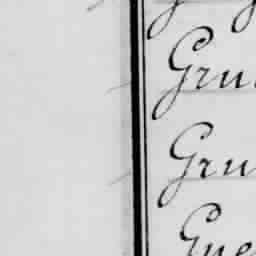 Gru
Gru
Gue